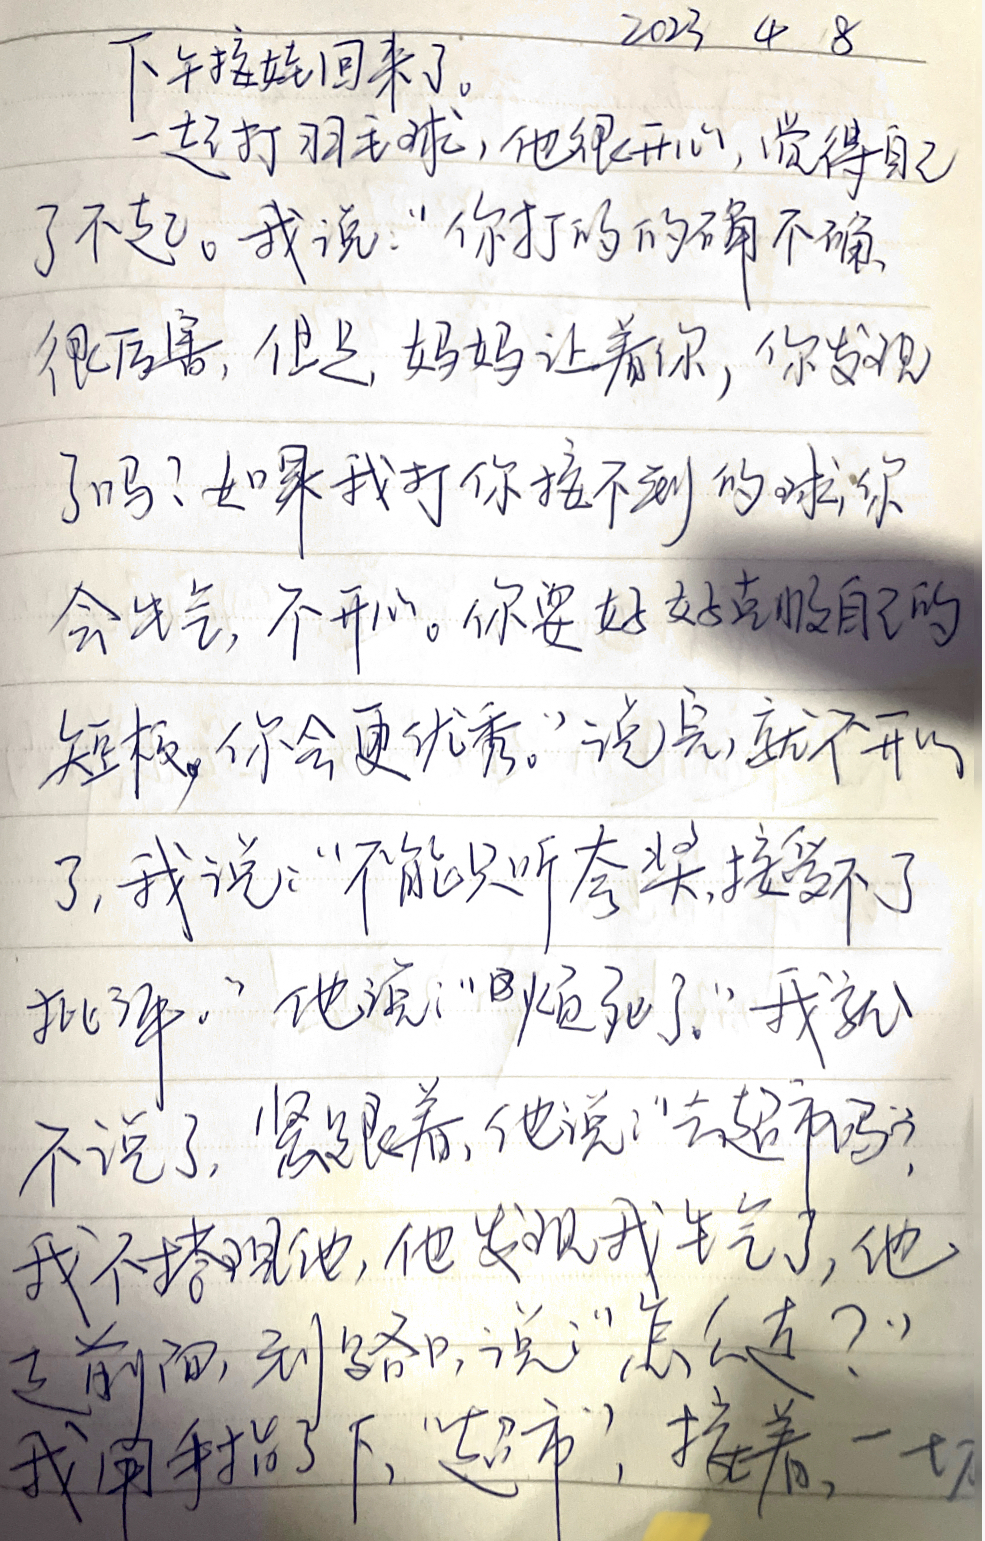 2023 4 8
下午接娃回来了。
一起打羽毛球，他很开心，觉得自己
了不起。我说："你打的的确不确
很厉害，但是，妈妈让着你，你发现
了吗？如果我打你接不到的球，你
会生气，不开心。你要好好克服自己的
短板，你会更优秀。"说完，就不开心
了，我说："不能只听夸奖，接受不了
批评。"他说："烦死了。"我就
不说了，紧跟着，他说："去超市吗？
我不搭理他，他发现我生气了，他
走前面，到路口，说"怎么走？"
我用手指了下，"超市"，接着，一切